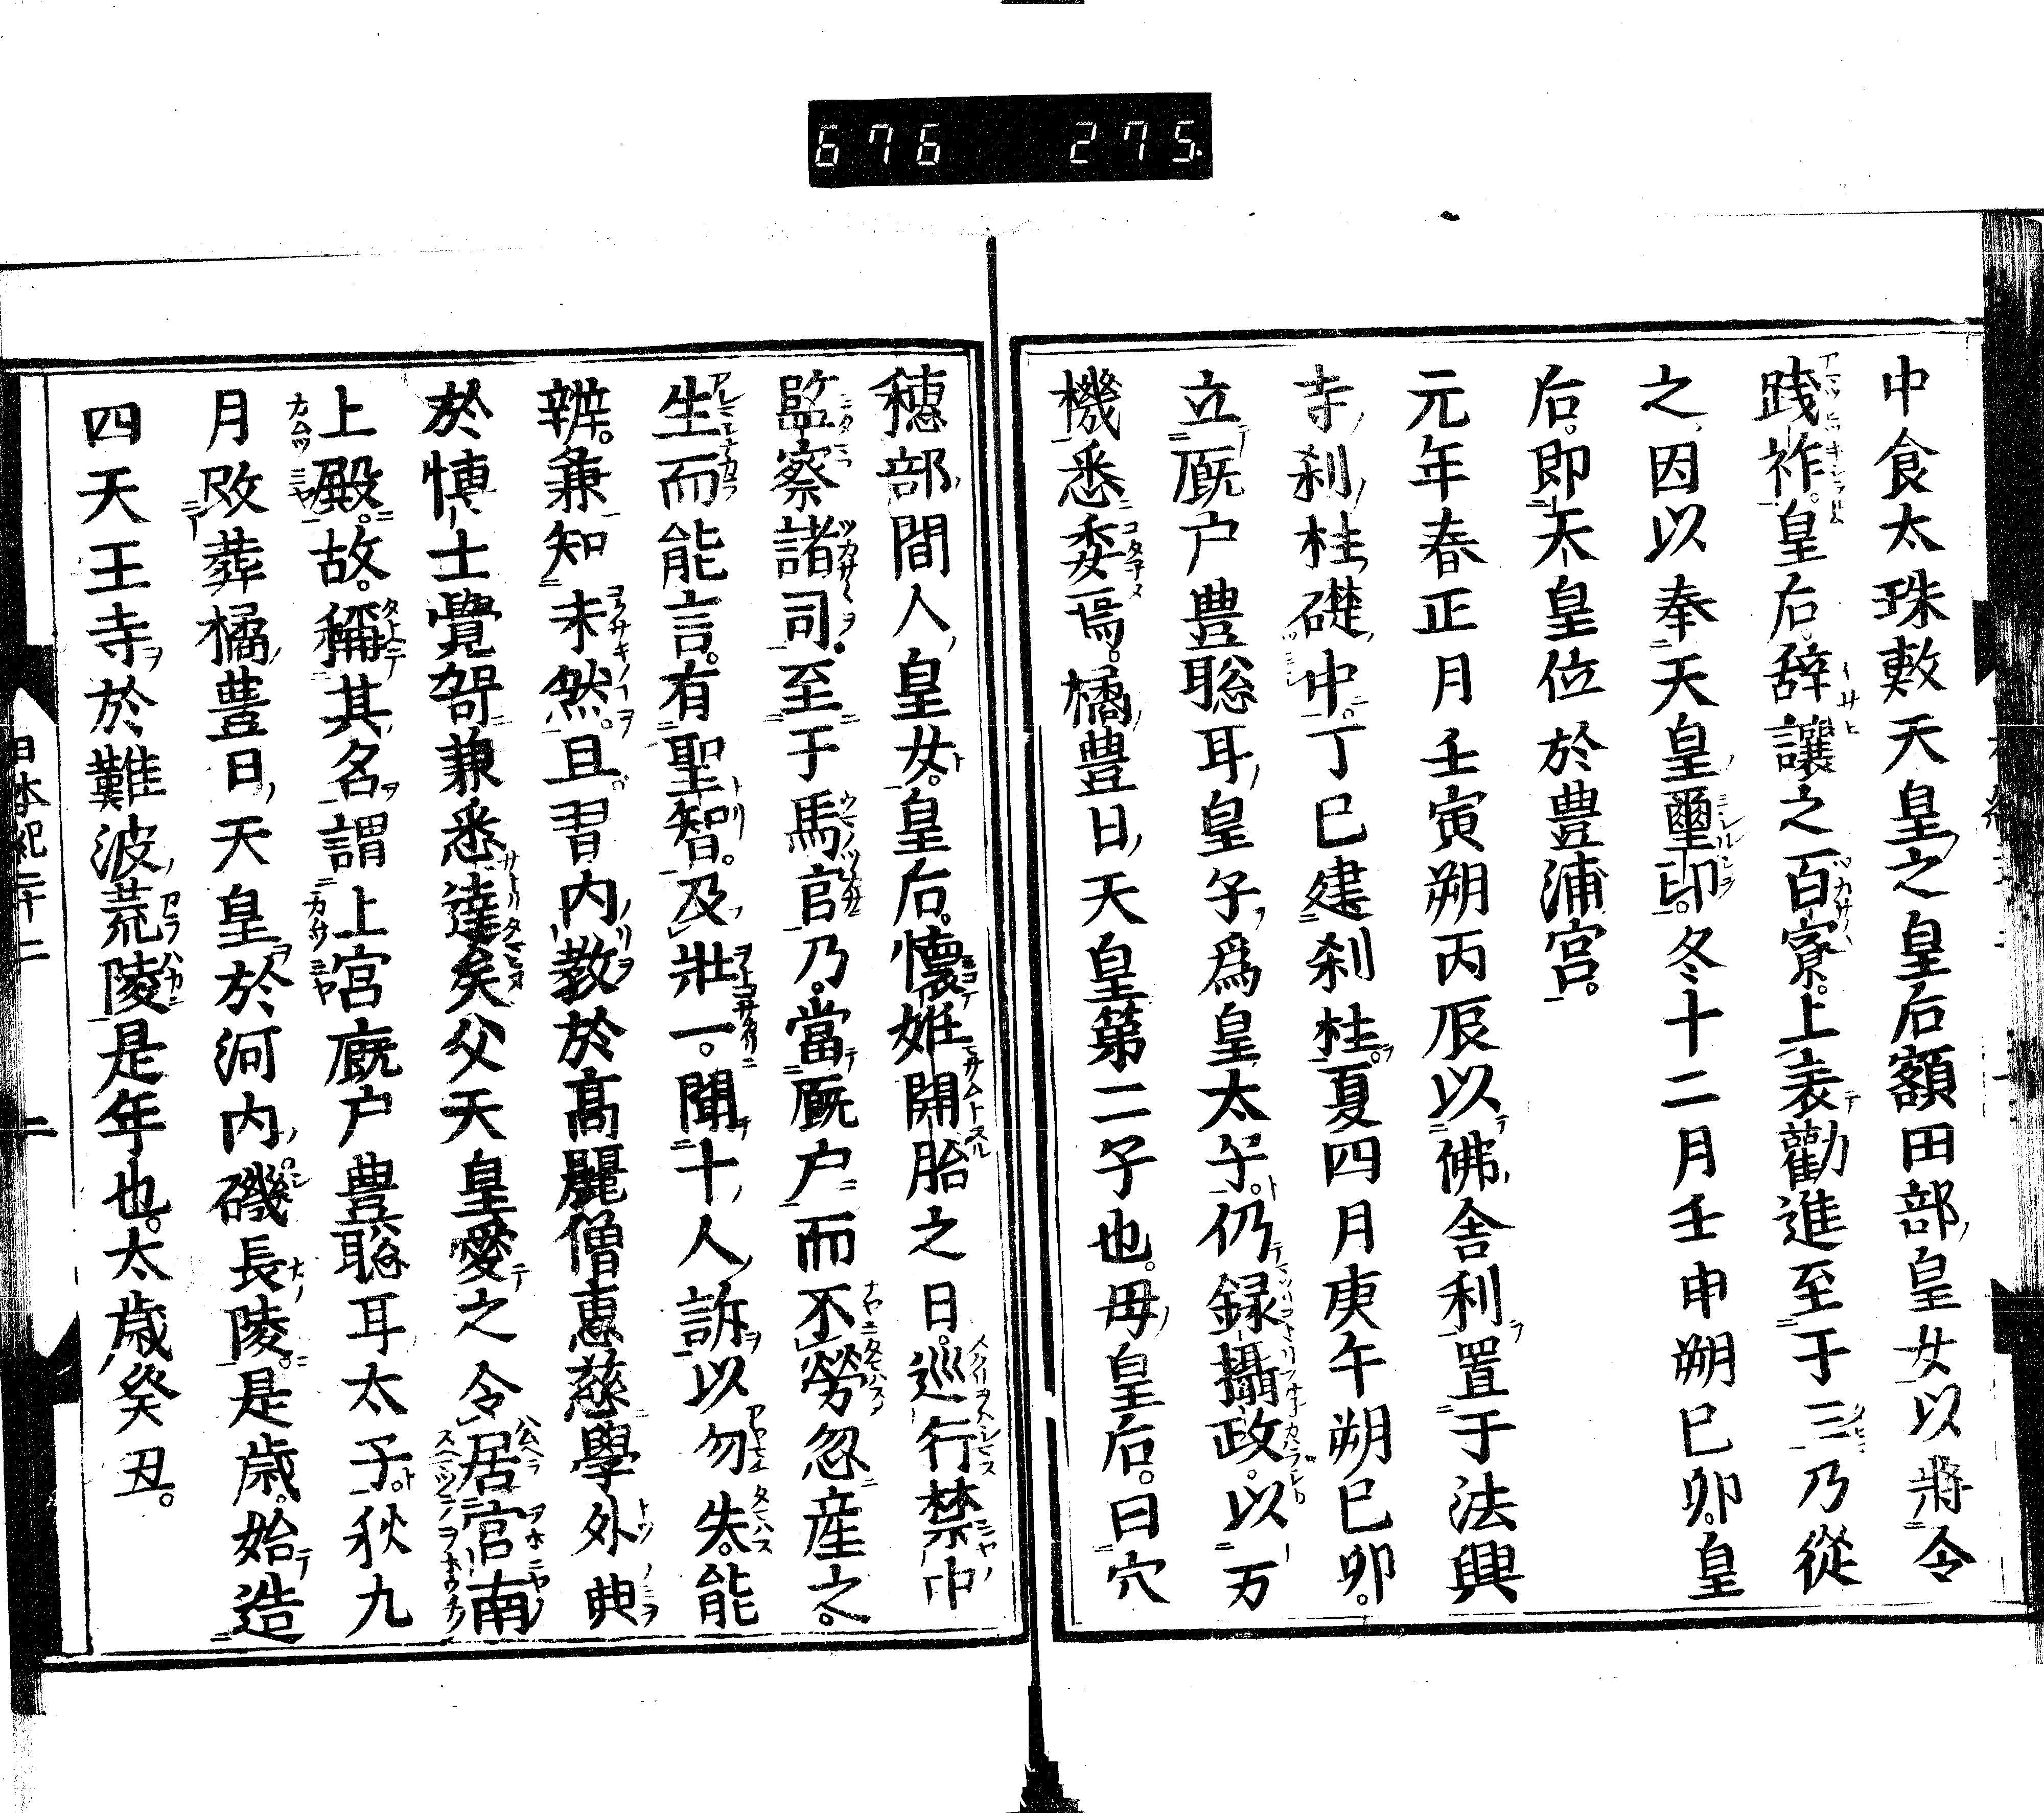 676 275
中食太珠敷天皇之皇后額田部皇女以將令
践祚皇后辞讓之百寮上表勸進至于三乃從
之因以奉天皇璽印冬十二月壬申朔己卯皇
后即天皇位於豊浦宮
元年春正月壬寅朔丙辰以佛舎利置于法興
寺刹柱礎中丁巳建刹柱夏四月庚午朔己卯
立厩户豊聡耳皇子爲皇太子仍録攝政以万
機悉委焉橘豊日天皇第二子也母皇后曰穴
穂部間人皇女皇后懐姙開胎之日巡行禁中
監察諸司至于馬官乃當厩户而不勞忽産之
生而能言有聖智及壯一聞十人訴以勿失能
辨兼知未然且習内教於髙麗僧惠慈學外典
於慱士覺哿兼悉達矣父天皇愛之令居宮南
上殿故稱其名謂上宮厩户豊聡耳太子秋九
月改葬橘豊日天皇於河内磯長陵是歳始造
四天王寺於難波荒陵是年也太歳癸丑
日本紀二十二 二